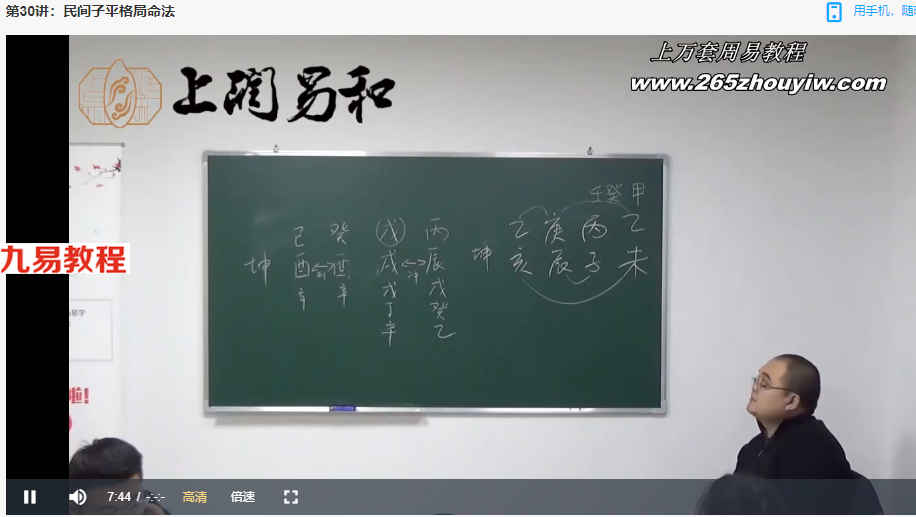 第30讲：民间子平格局命法
用手机，随
上万套周易教程
www.265zhouyiw.com
上润易和
壬癸甲
己癸戊丙
乙庚丙乙
坤酉酉戌辰
坤亥辰子未
冲
辛辛戊戊
丁癸
辛乙
九易教程
易学
啦！
7:44 / -:-
高清
倍速